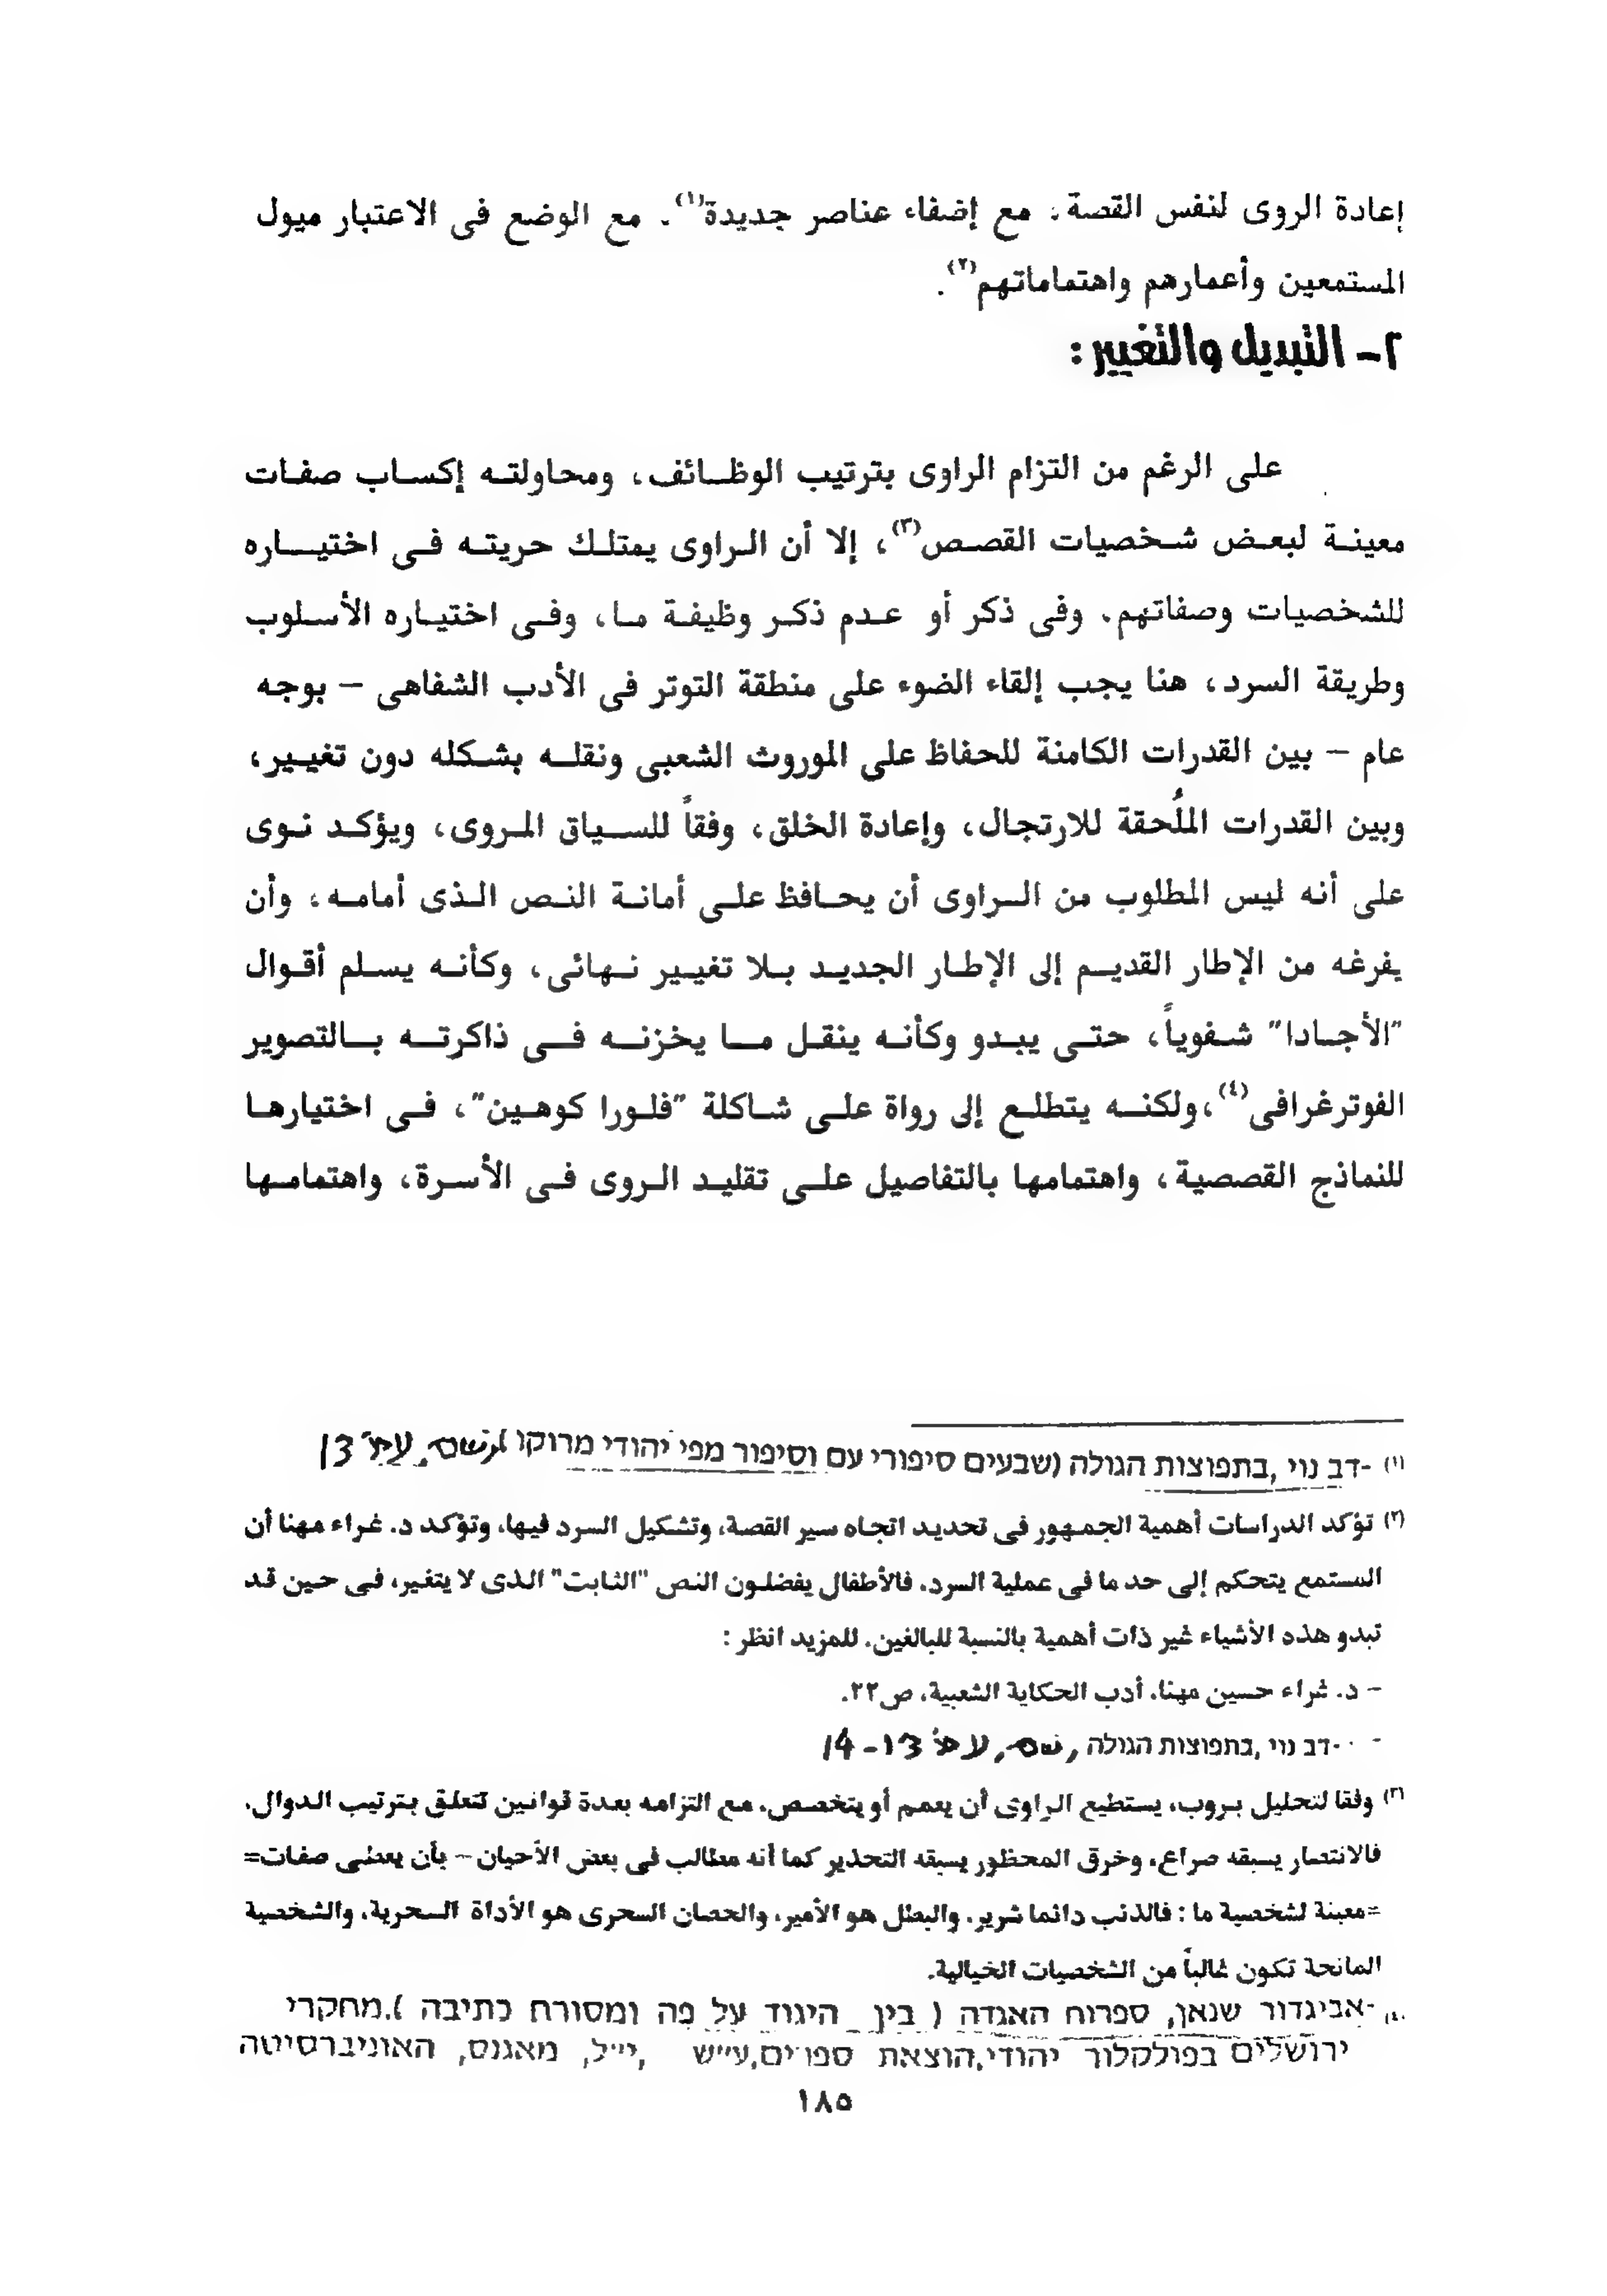 إعادة الروى لنفس القصة، مع إضفاء عناصر جديدة(١). مع الوضع فى الاعتبار ميول
المستمعين وأعمارهم واهتماماتهم(٢).
٢- التبديل والتغيير:
على الرغم من التزام الراوى بترتيب الوظائف، ومحاولته إكساب صفات
معينة لبعض شخصيات القصص(٣)، إلا أن الراوى يمتلك حريته فى اختياره
للشخصيات وصفاتهم، وفى ذكر أو عدم ذكر وظيفة ما، وفى اختياره الأسلوب
وطريقة السرد، هنا يجب إلقاء الضوء على منطقة التوتر فى الأدب الشفاهى – بوجه
عام – بين القدرات الكامنة للحفاظ على الموروث الشعبى ونقله بشكله دون تغيير،
وبين القدرات المُلحقة للارتجال، وإعادة الخلق، وفقاً للسياق المروى، ويؤكد نوى
على أنه ليس المطلوب من الراوى أن يحافظ على أمانة النص الذى أمامه، وأن
يفرغه من الإطار القديم إلى الإطار الجديد بلا تغيير نهائى، وكأنه يسلم أقوال
"الأجادا" شفوياً، حتى يبدو وكأنه ينقل ما يخزنه فى ذاكرته بالتصوير
الفوترغرافى(٤)،ولكنه يتطلع إلى رواة على شاكلة "فلورا كوهين"، فى اختيارها
للنماذج القصصية، واهتمامها بالتفاصيل على تقليد الروى فى الأسرة، واهتمامها
(١) -דב נוי ,בתפוצות הגולה (שבעים סיפורי עם וסיפור מפי יהודי מרוקו ),שם, עמ' 13
(٢) تؤكد الدراسات أهمية الجمهور فى تحديد اتجاه سير القصة، وتشكيل السرد فيها، وتؤكد د. غراء مهنا أن
المستمع يتحكم إلى حد ما فى عملية السرد، فالأطفال يفضلون النص "الثابت" الذى لا يتغير، فى حين قد
تبدو هذه الأشياء غير ذات أهمية بالنسبة للبالغين. للمزيد انظر:
– د. غراء حسين مهنا، أدب الحكاية الشعبية، ص٢٢.
- -דב נוי ,בתפוצות הגולה ,שם, עמ' 13-14
(٣) وفقا لتحليل بروب، يستطيع الراوى أن يعمم أو يتخصص، مع التزامه بعدة قوانين تتعلق بترتيب الدوال،
فالانتصار يسبقه صراع، وخرق المحظور يسبقه التحذير كما أنه مطالب فى بعض الأحيان – بأن يعطى صفات=
=معينة لشخصية ما: فالذئب دائما شرير، والبطل هو الأمير، والحصان السحرى هو الأداة السحرية، والشخصية
المانحة تكون غالباً من الشخصيات الخيالية.
(٤) -אביגדור שנאן, ספרות האגדה ( בין היגוד על פה ומסורת כתיבה ).מחקרי
ירושלים בפולקלור יהודי,הוצאת ספרים,ע״ש ,י״ל, מאגנס, האוניברסיטה
١٨٥